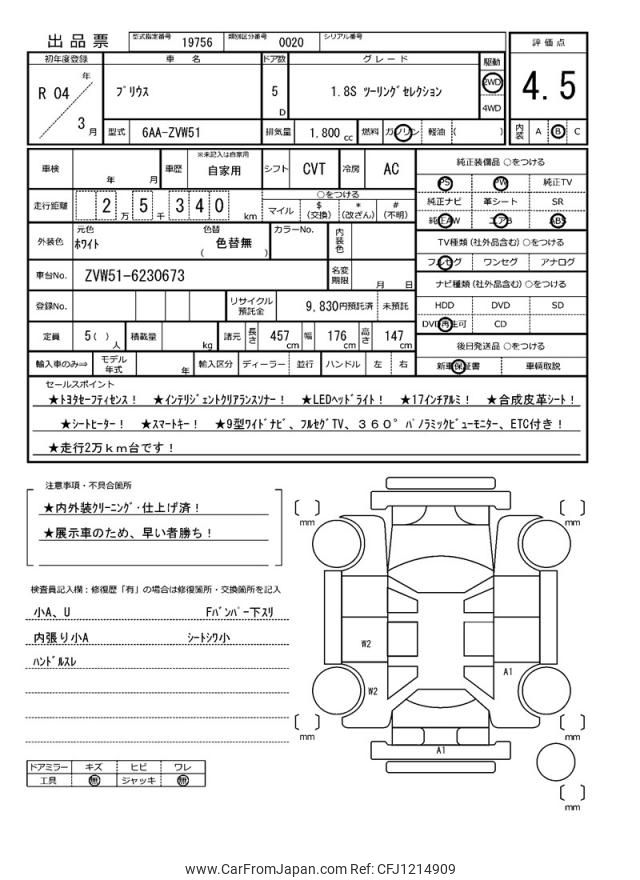 出品票 型式指定番号 19756 類別区分番号 0020 シリアル番号
評価点
4.5
初年度登録 車名 ドア数 グレード 駆動
R 04 年 3 月
プリウス
5 D
1.8S ツーリングセレクション
2WD
4WD
型式 6AA-ZVW51 排気量 1,800 cc 燃料 ガソリン 軽油 ( )
内装 A B C
車検 年 月 車歴 ※未記入は自家用 自家用 シフト CVT 冷房 AC
走行距離 2 万 5 千 3 4 0 km
○をつける
マイル $(交換) *(改ざん) #(不明)
外装色 元色 ホワイト 色替 色替無 ( ) カラーNo. 内装色
車台No. ZVW51-6230673 名変期限 月 日
登録No. リサイクル預託金 9,830円預託済 未預託
定員 5( )人 積載量 kg 諸元 長さ 457 cm 幅 176 cm 高さ 147 cm
輸入車のみ⇒ モデル年式 年 輸入区分 ディーラー 並行 ハンドル 左 右
純正装備品 ○をつける
PS PW 純正TV
純正ナビ 革シート SR
純正AW エアB ABS
TV種類 (社外品含む) ○をつける
フルセグ ワンセグ アナログ
ナビ種類 (社外品含む) ○をつける
HDD DVD SD
DVD再生可 CD
後日発送品 ○をつける
新車保証書 車輌取説
セールスポイント
★トヨタセーフティセンス! ★インテリジェントクリアランスソナー! ★LEDヘッドライト! ★17インチアルミ! ★合成皮革シート!
★シートヒーター! ★スマートキー! ★9型ワイドナビ、フルセグTV、360°パノラミックビューモニター、ETC付き!
★走行2万km台です!
注意事項・不具合箇所
★内外装クリーニング・仕上げ済!
★展示車のため、早い者勝ち!
検査員記入欄:修復歴「有」の場合は修復箇所・交換箇所を記入
小A、U Fバンパー下スリ
内張り小A シートシワ小
ハンドルスレ
ドアミラー キズ ヒビ ワレ
工具 無 ジャッキ 無
mm
mm
W2
A1
W2
mm
mm
A1
mm
www.CarFromJapan.com Ref: CFJ1214909